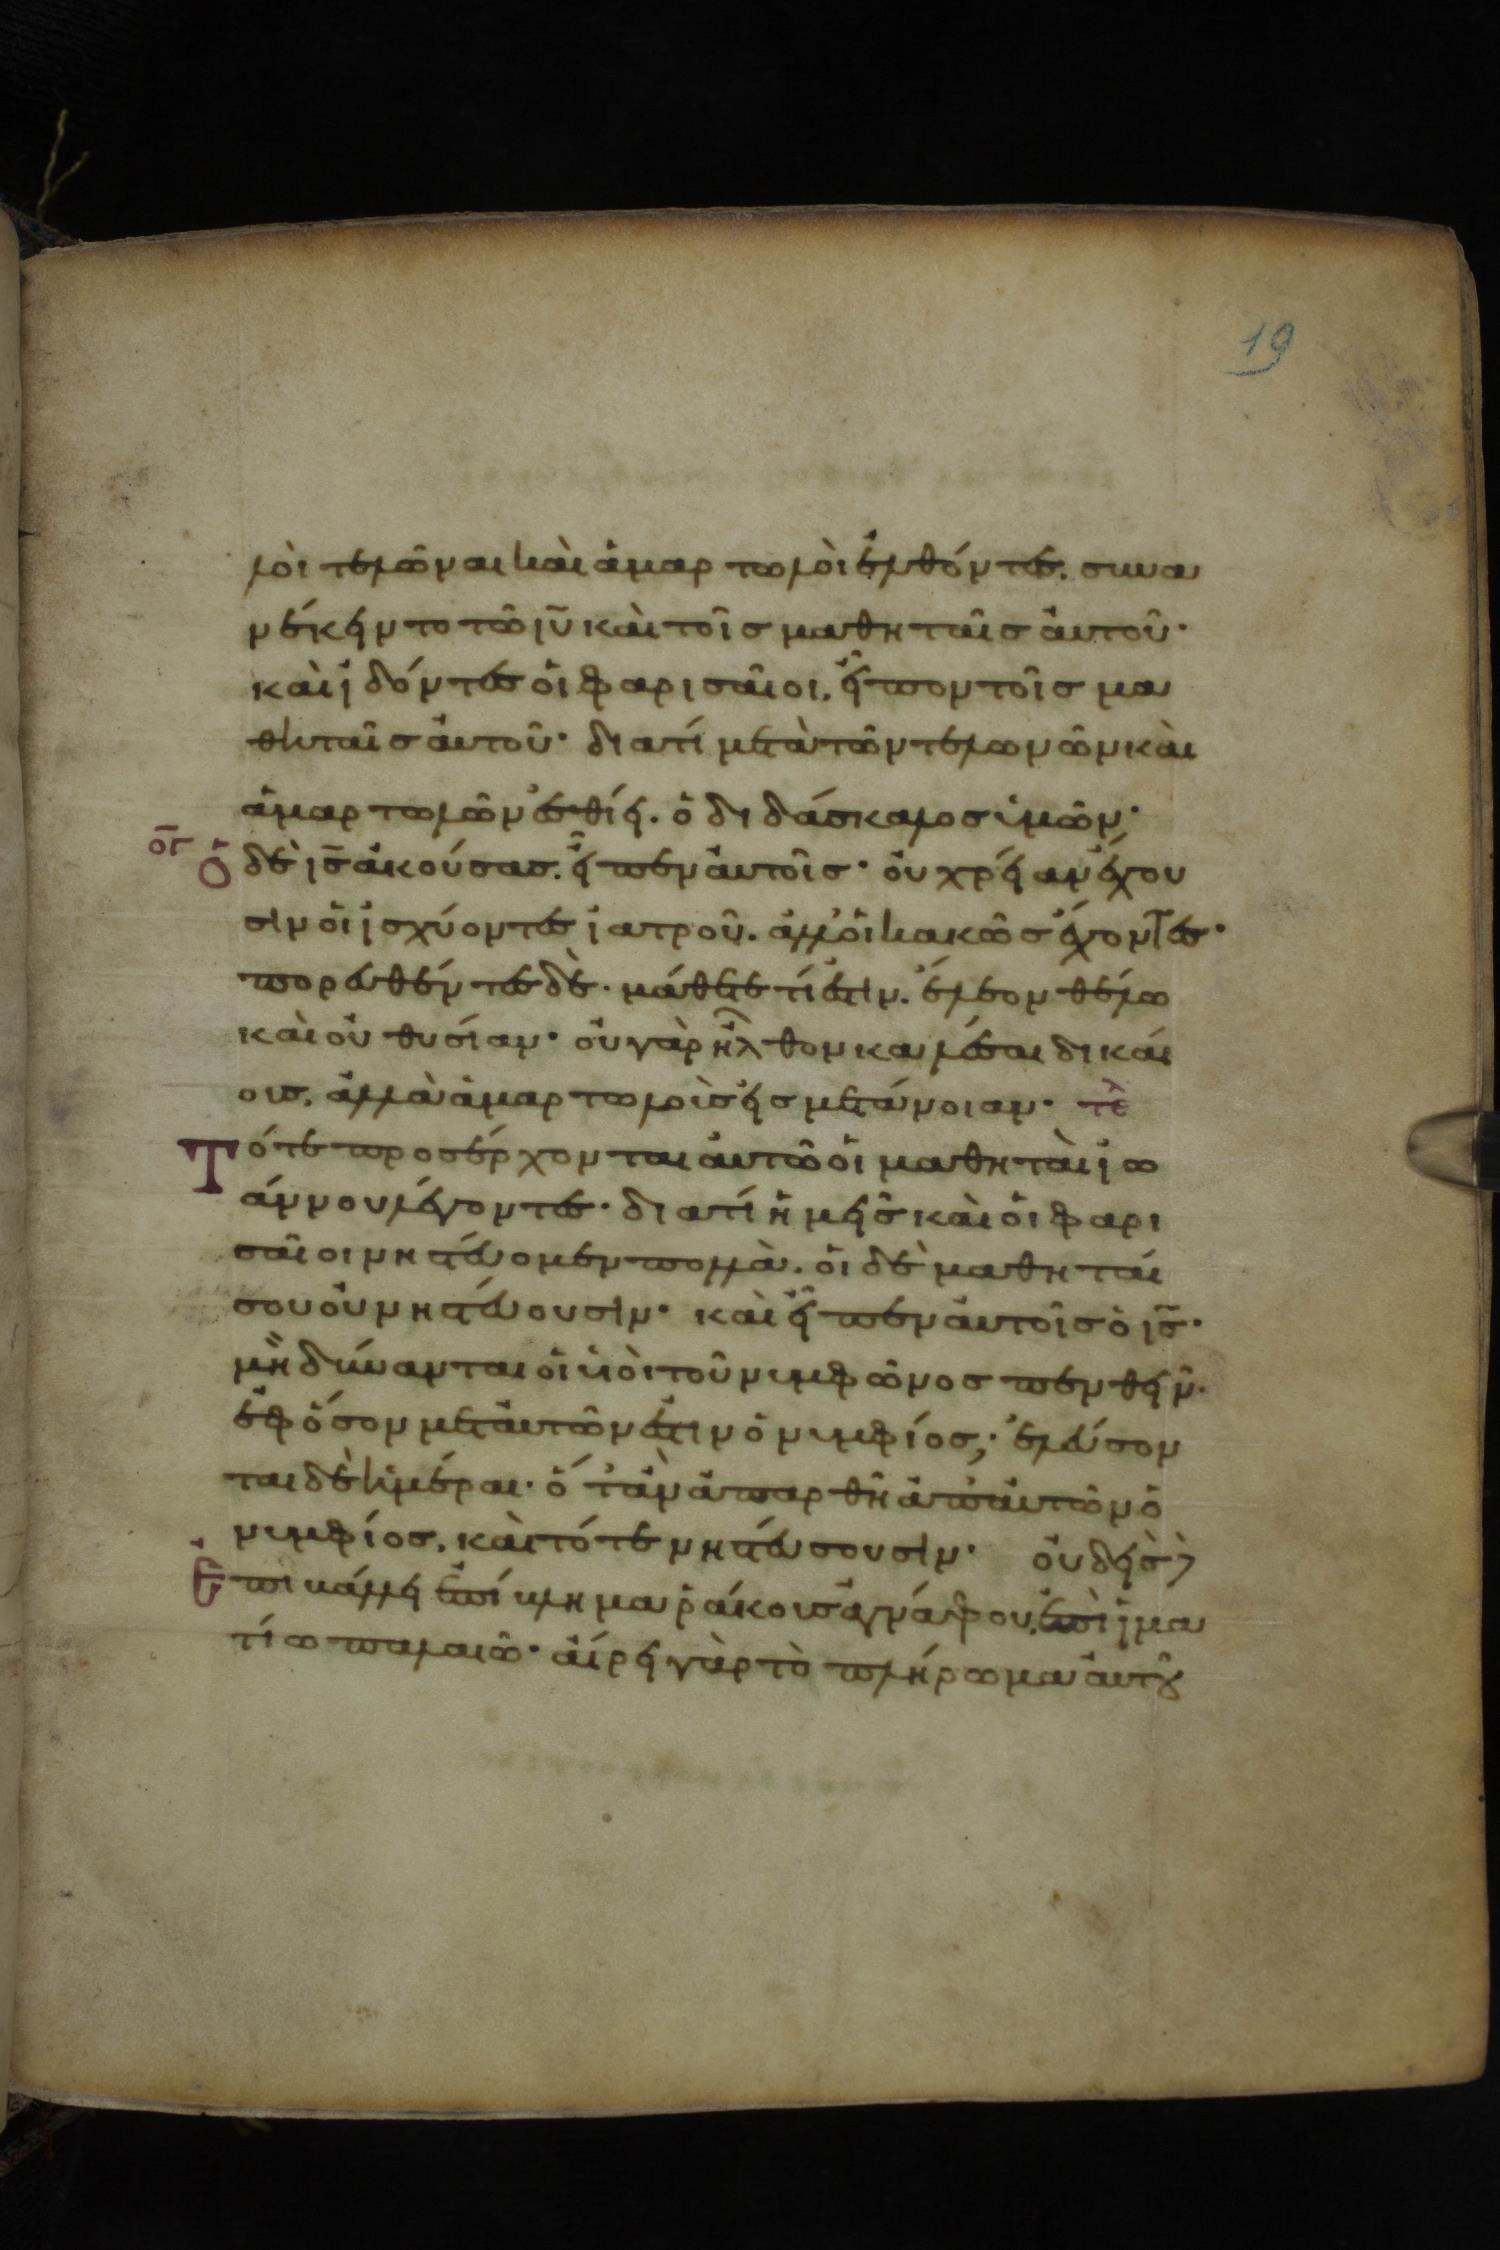 19
λοὶ τελῶναι καὶ ἁμαρτωλοὶ ἐλθόντες. συνα
νέκειντο τῶ ιῦ καὶ τοῖς μαθηταῖς αὐτοῦ·
καὶ ἰδόντες οἱ φαρισαῖοι. εἶπον τοῖς μα
θηταῖς αὐτοῦ· διατί μετὰ τῶν τελωνῶν καὶ
ἁμαρτωλῶν ἐσθίει. ὁ διδάσκαλος ὑμῶν·
ογ Ὁ δὲ ις̄ ἀκούσας. εἶπεν αὐτοῖς· οὐ χρείαν ἔχου
σιν οἱ ἰσχύοντες ἰατροῦ. ἀλλ' οἱ κακῶς ἔχοντες·
πορευθέντες δὲ. μάθετε τί ἐστιν. ἔλεον θέλω
καὶ οὐ θυσίαν· οὐ γὰρ ἦλθον καλέσαι δικαί
ους. ἀλλὰ ἁμαρτωλοὺς εἰς μετάνοιαν· τε
Τότε προσέρχονται αὐτῶ οἱ μαθηταὶ ἰω
άννου λέγοντες· διατί ἡμεῖς καὶ οἱ φαρι
σαῖοι νηστεύομεν πολλὰ. οἱ δὲ μαθηταί
σου οὐ νηστεύουσιν· καὶ εἶπεν αὐτοῖς ὁ ις̄·
μὴ δύνανται οἱ υἱοὶ τοῦ νυμφῶνος πενθεῖν·
ἐφ' ὅσον μετ' αὐτῶν ἐστιν ὁ νυμφίος; ἐλεύσον
ται δὲ ἡμέραι· ὅταν ἀπαρθῆ ἀπ' αὐτῶν ὁ
νυμφίος. καὶ τότε νηστεύσουσιν· οὐδεὶς δὲ
Ἐπιβάλλει ἐπίβλημα ῥάκους ἀγνάφου. ἐπὶ ἱμα
τίω παλαιῶ· αἴρει γὰρ τὸ πλήρωμα αὐτοῦ